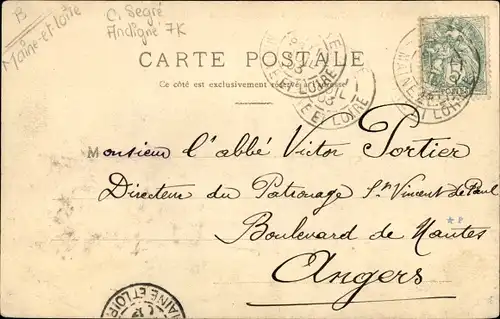 B
Maine-et-Loire
C. Segré
Andigné 7K
CARTE POSTALE
Ce côté est exclusivement réservé à l'adresse
Monsieur l'abbé Victor Portier
Directeur du Patronage St Vincent de Paul
Boulevard de Nantes
Angers
MAINE ET LOIRE